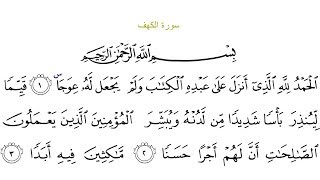 سورة الكهف
بِسْمِ اللَّهِ الرَّحْمَٰنِ الرَّحِيمِ
الْحَمْدُ لِلَّهِ الَّذِي أَنزَلَ عَلَىٰ عَبْدِهِ الْكِتَابَ وَلَمْ يَجْعَل لَّهُ عِوَجَا ۜ ﴿١﴾ قَيِّمًا
لِّيُنذِرَ بَأْسًا شَدِيدًا مِّن لَّدُنْهُ وَيُبَشِّرَ الْمُؤْمِنِينَ الَّذِينَ يَعْمَلُونَ
الصَّالِحَاتِ أَنَّ لَهُمْ أَجْرًا حَسَنًا ﴿٢﴾ مَّاكِثِينَ فِيهِ أَبَدًا ﴿٣﴾